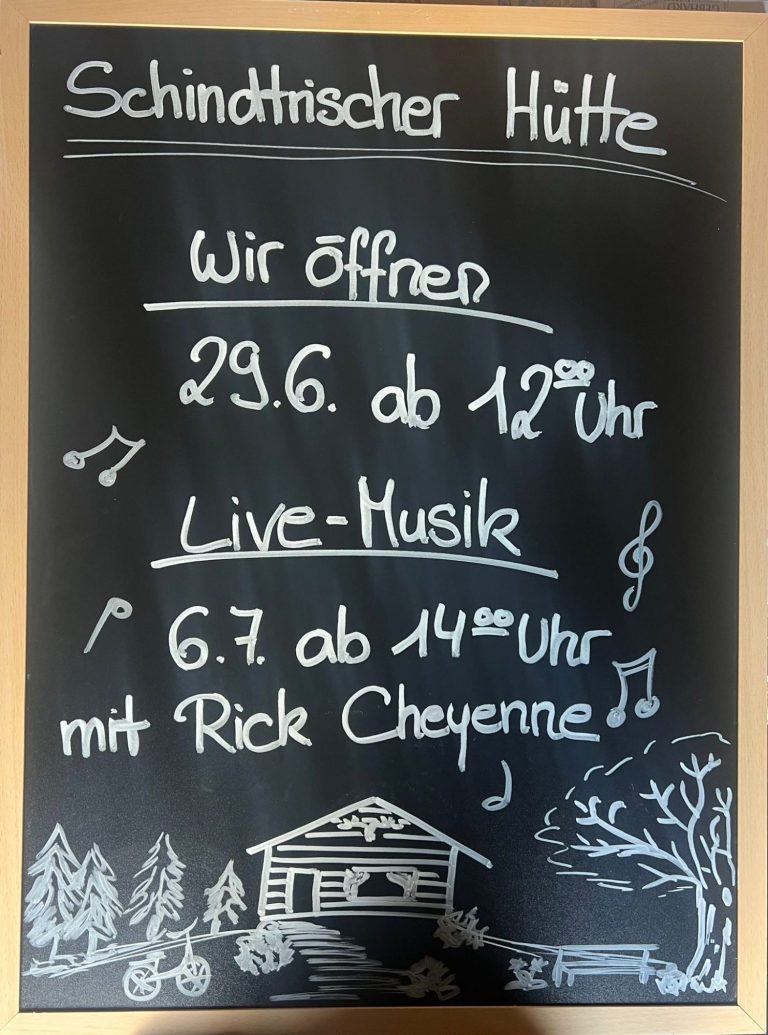 Schindtrischer Hütte
Wir öffnen
29.6. ab 12⁰⁰ Uhr
Live-Musik
6.7. ab 14⁰⁰ Uhr
mit Rick Cheyenne
GEBHARD